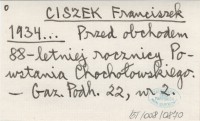 CISZEK Franciszek
1934... Przed obchodem
88-letniej rocznicy Po-
wstania Chochołowskiego.
– Gaz. Podh. 22, nr 2.